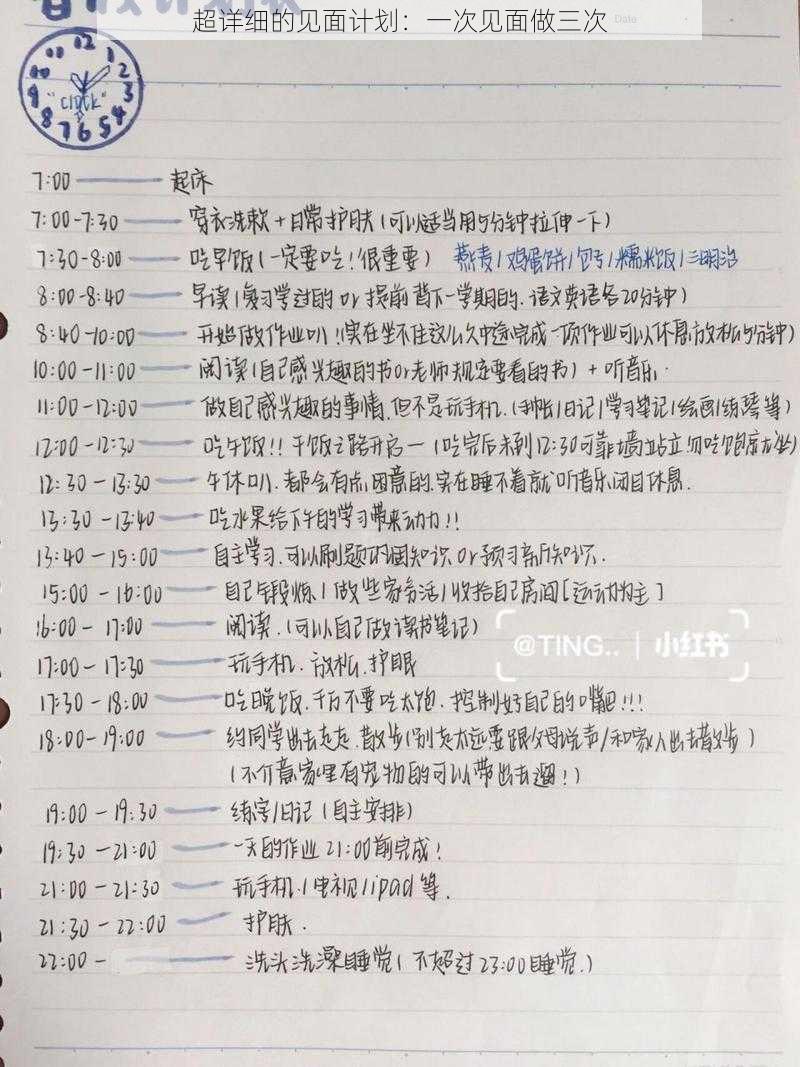 超详细的见面计划：一次见面做三次
Date
12
11
1
10
2
9
"CLOCK"
3
8
4
7
6
5
7:00 —— 起床
7:00-7:30 —— 穿衣洗漱+日常护肤(可以适当用5分钟拉伸一下)
7:30-8:00 —— 吃早饭(一定要吃!很重要) 燕麦/鸡蛋饼/包子/糯米饭/三明治
8:00-8:40 —— 早读(复习学过的 or 提前背下一学期的.语文英语各20分钟)
8:40-10:00 —— 开始做作业叭!(实在坐不住这么久中途完成一项作业可以休息放松5分钟)
10:00-11:00 —— 阅读(自己感兴趣的书or老师规定要看的书)+听音乐.
11:00-12:00 —— 做自己感兴趣的事情.但不是玩手机.(手帐/日记/学习笔记/绘画/练琴等)
12:00-12:30 —— 吃午饭!!干饭之路开启—(吃完后未到12:30可靠墙站立勿吃饱度)
12:30-13:30 —— 午休叭.都会有点困意的.实在睡不着就听音乐闭目休息.
13:30-13:40 —— 吃水果给下午的学习带来动力!!
13:40-15:00 —— 自主学习.可以刷题巩固知识 or 预习新知识.
15:00-16:00 —— 自己锻炼/做些家务活/收拾自己房间[运动为主]
16:00-17:00 —— 阅读.(可以自己做读书笔记)
@TING.. | 小红书
17:00-17:30 —— 玩手机.放松.护眼
17:30-18:00 —— 吃晚饭.千万不要吃太饱.控制好自己的嘴巴!!!
18:00-19:00 —— 约同学出去走走.散步(别走太远要跟父母说声/和家人出去散步)
(不介意家里有宠物的可以带出去遛!)
19:00-19:30 —— 练字/日记(自主安排)
19:30-21:00 —— 一天的作业21:00前完成!
21:00-21:30 —— 玩手机/电视/ipad等.
21:30-22:00 —— 护肤.
22:00- —— 洗头洗澡睡觉(不超过23:00睡觉.)